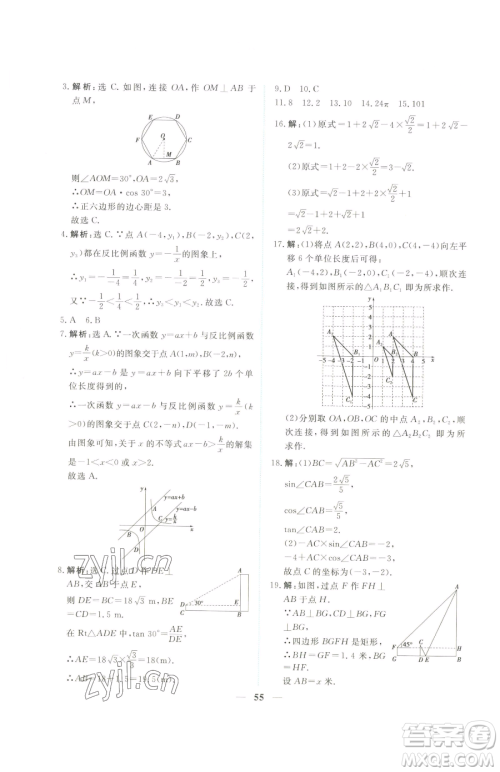 3. 解析:选 C. 如图,连接 OA,作 OM⊥AB 于
点 M,
则∠AOM=30°,OA=2√3,
∴OM=OA·cos 30°=3.
∴正六边形的边心距是 3.
故选 C.
4. 解析:选 C. ∵点 A(-4,y₁),B(-2,y₂),C(2,
y₃)都在反比例函数 y=-1/x 的图象上,
∴y₁=-1/-4=1/4,y₂=-1/-2=1/2,y₃=-1/2.
又∵-1/2<1/4<1/2,∴y₃<y₁<y₂. 故选 C.
5. A 6. B
7. 解析:选 A. ∵一次函数 y=ax+b 与反比例函数
y=k/x(k>0)的图象交于点 A(1,m),B(-2,n),
又∵y=ax-b 是 y=ax+b 向下平移了 2b 个单
位长度得到的,
∴一次函数 y=ax-b 与反比例函数 y=k/x(k>
0)的图象交于点 C(2,n),D(-1,-m).
由图象可知,关于 x 的不等式 ax-b>k/x 的解集
是-1<x<0 或 x>2.
故选 A.
8. 解析:选 C. 过点 D 作 DE⊥
AB,交 AB 于点 E,
则 DE=BC=18√3 m,BE
=CD=1.5 m.
在 Rt△ADE 中,tan 30°=AE/DE
∴AE=18√3×√3/3=18(m).
∴AB=18+1.5=19.5(m). 故选 C.
9. D 10. C
11. 8 12. 2 13. 10 14. 24π 15. 101
16. 解:(1)原式=1+2√2-4×√2/2
=1+2√2-2√2
=1.
(2)原式=1+2-2×√2/2
=1+2-√2
=3-√2.
17. 解:(1)将点 A(2,2),B(4,0),C(4,-4)向左平
移 6 个单位长度后可得:
A₁(-4,2),B₁(-2,0),C₁(-2,-4),顺次连接
可得如图所示的△A₁B₁C₁ 即为所求作.
(2)分别取 OA,OB,OC 的中点 A₂,B₂,C₂,顺次
连接,可得如图所示的△A₂B₂C₂ 即为所求作.
18. 解:(1)BC=√AB²-AC²=2√5,
sin∠CAB=2√5/5,
cos∠CAB=√5/5,
tan∠CAB=2.
(2)-AC×sin∠CAB=-2,
-2-AC×cos∠CAB=-3,
∴点 C 的坐标为(-2,-3).
19. 解:如图,过点 F 作 FH⊥
AB 于点 H.
∵AB⊥BG,FG⊥BG,
FH⊥BG,
∴四边形 BGFH 是矩形.
∴BH=FG=1.4 米.
设 AB=x 米.
55
zyjl.cn
zyjl.cn